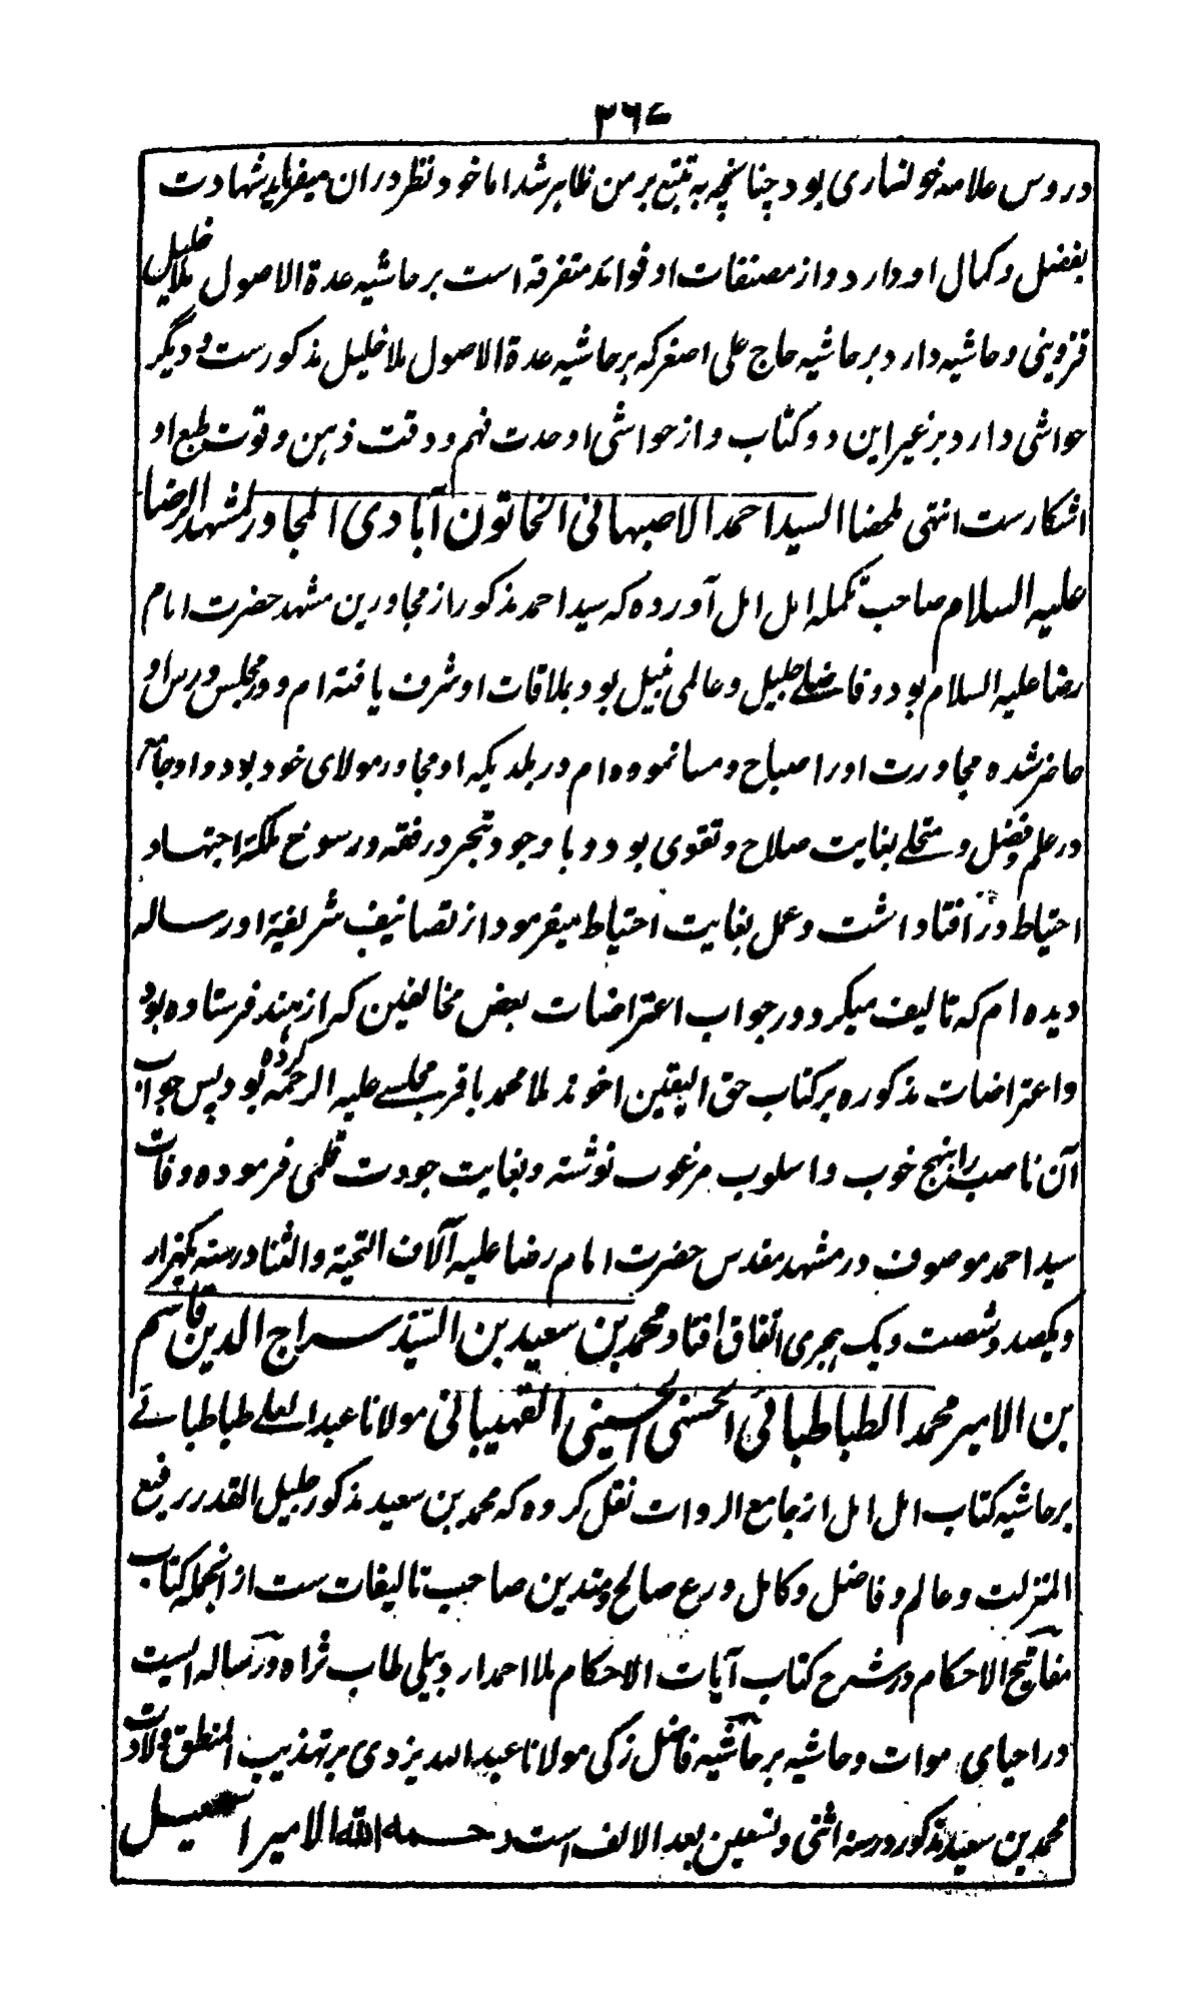 ۳۶۷
دروس علامه خوانساری بود چنانچه به تتبع بر من ظاهر شد اما خود نظر دران میفرماید شهادت
بفضل و کمال او دارد و از مصنفات او فوائد متفرقة است بر حاشیه عدة الاصول ملا خلیل
قزوینی و حاشیه دارد بر حاشیه حاج علی اصغر که بر حاشیه عدة الاصول ملا خلیل مذکورست و دیگر
حواشی دارد بر غیر این دو کتاب و از حواشی او حدت فهم و دقت ذهن و قوت طبع او
اشکارست انتهی ملخصا السید احمد الاصبهانی الخاتون آبادی المجاور لمشهد الرضا
علیه السلام صاحب تکمله امل امل آورده که سید احمد مذکور از مجاورین مشهد حضرت امام
رضا علیه السلام بود و فاضلی جلیل و عالمی نبیل بود بملاقات او شرف یافته ام و در مجلس درس او
حاضر شده مجاورت اورا صباح و مسا نموده ام در بلدیکه او مجاور مولای خود بود و او جامع
در علم و فضل و متحلے بغایت صلاح و تقوی بود و با وجود تبحر در فقه و رسوخ ملکۀ اجتهاد
احتیاط در افتا داشت و عمل بغایت احتیاط میفرمود از تصانیف شریفۀ او رساله
دیده ام که تالیف میکرد در جواب اعتراضات بعض مخالفین که از هند فرستاده بود
و اعتراضات مذکوره بر کتاب حق الیقین اخوند ملا محمد باقر مجلسے علیه الرحمة کرده بود پس جواب
آن ناصب را بنهج خوب و اسلوب مرغوب نوشته و بغایت جودت تکلمی فرموده وفات
سید احمد موصوف در مشهد مقدس حضرت امام رضا علیه آلاف التحیة والثنا در سنه یکهزار
و یکصد و شصت و یک هجری اتفاق افتاد محمد بن سعید بن السید سراج الدین قاسم
بن الامیر محمد الطباطبائی الحسنی الحسینی القهپائی مولانا عبد العلے طباطبائے
بر حاشیه کتاب امل امل از جامع الروات نقل کرده که محمد بن سعید مذکور جلیل القدر رفیع
المنزلت و عالم و فاضل و کامل ورع صالح و متدین صاحب تالیفات ست از انجمله کتاب
مفاتیح الاحکام در شرح کتاب آیات الاحکام ملا احمد اردبیلی طاب ثراه و رساله ایست
در احیای موات و حاشیه بر حاشیه فاضل زکی مولانا عبد الله یزدی بر تهذیب المنطق ولادت
محمد بن سعید مذکور در سنه اثنی و تسعین بعد الالف است رحمه الله الامیر اسمعیل